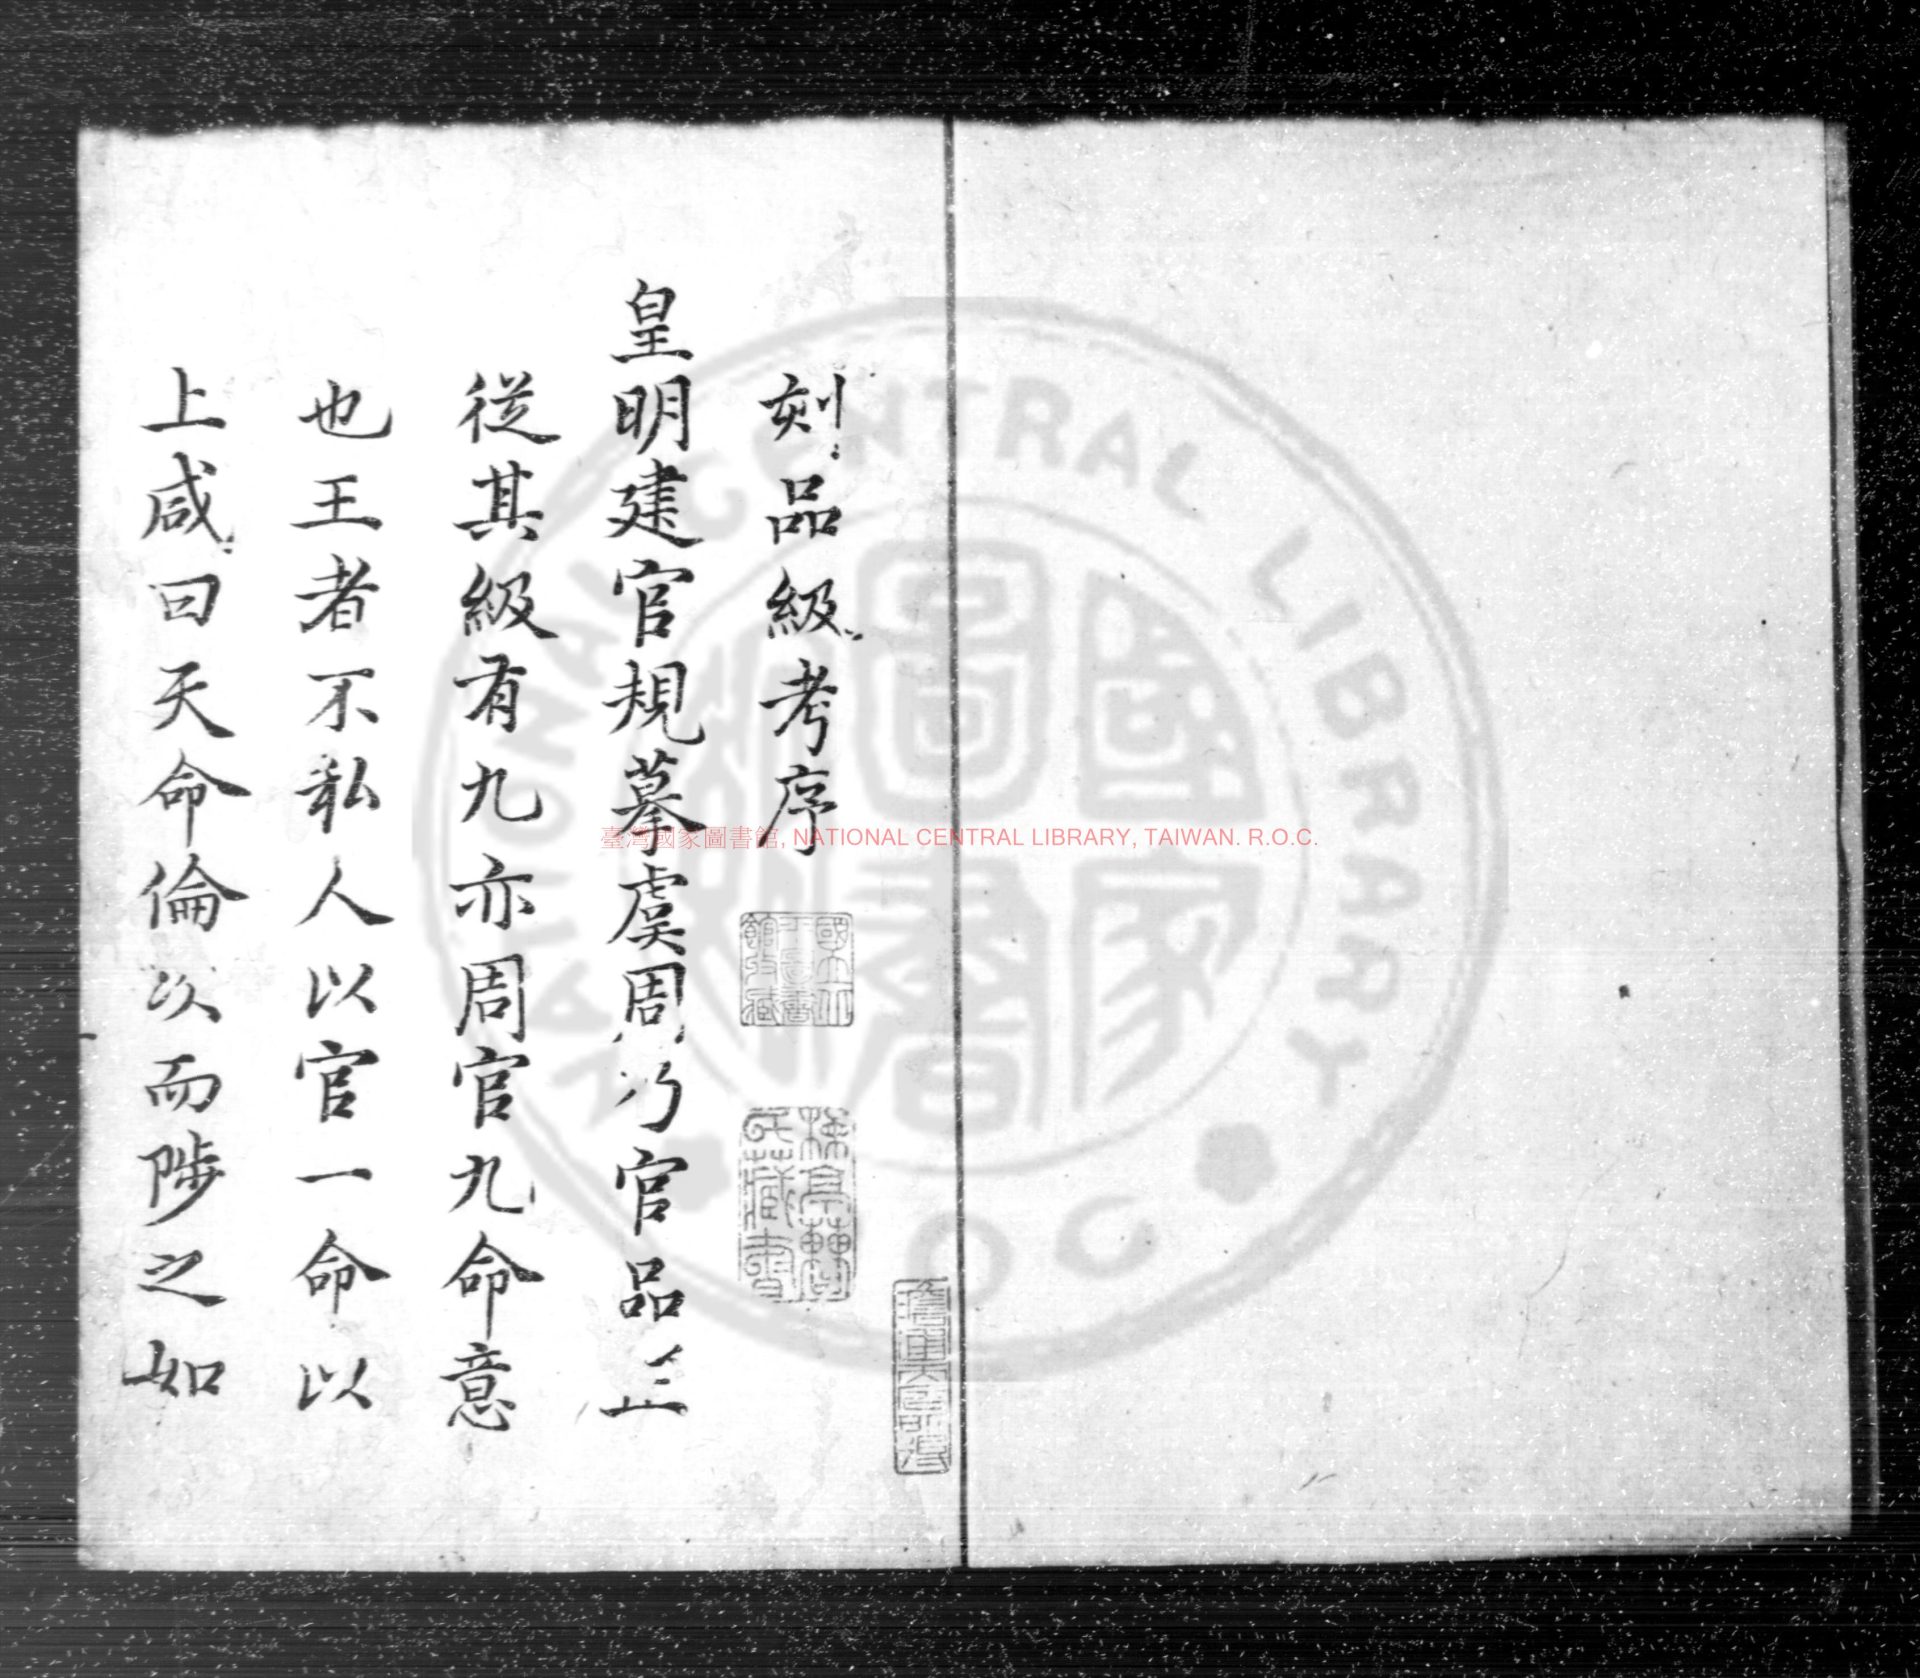 刻品級考序
皇明建官規摹虞周乃官品正
從其級有九亦周官九命意
也王者不私人以官一命以
上咸曰天命倫次而陟之如
國立中央圖書館收藏
楝亭曹氏藏書
臺灣國家圖書館, NATIONAL CENTRAL LIBRARY, TAIWAN. R.O.C.
NATIONAL CENTRAL LIBRARY
國家圖書館